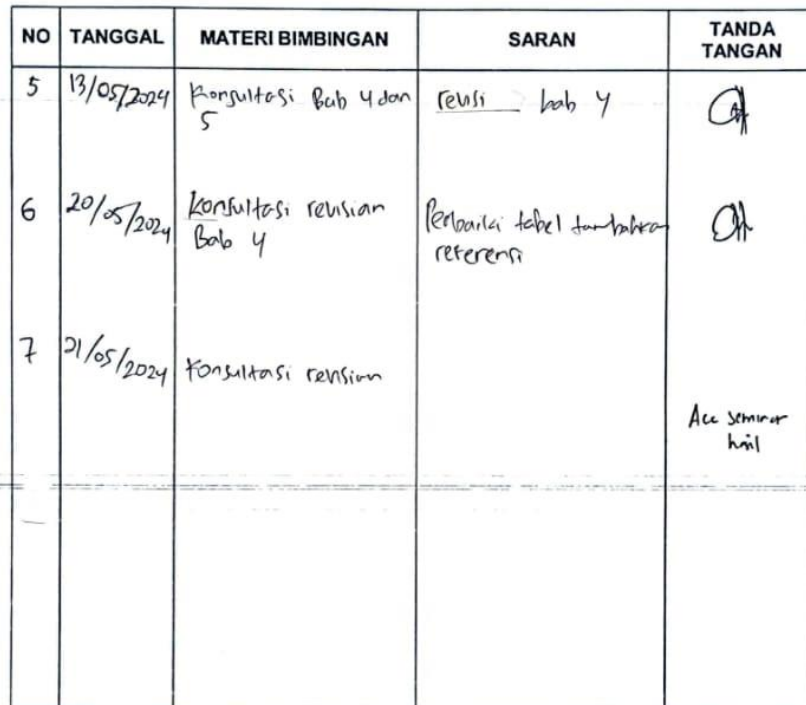 NO TANGGAL MATERI BIMBINGAN SARAN TANDA TANGAN
5 13/05/2024 Konsultasi Bab 4 dan revisi bab 4
5
6 20/05/2024 Konsultasi revisian Perbaiki tabel tambahkan
Bab 4 referensi
7 21/05/2024 Konsultasi revisian
Acc seminar
hasil